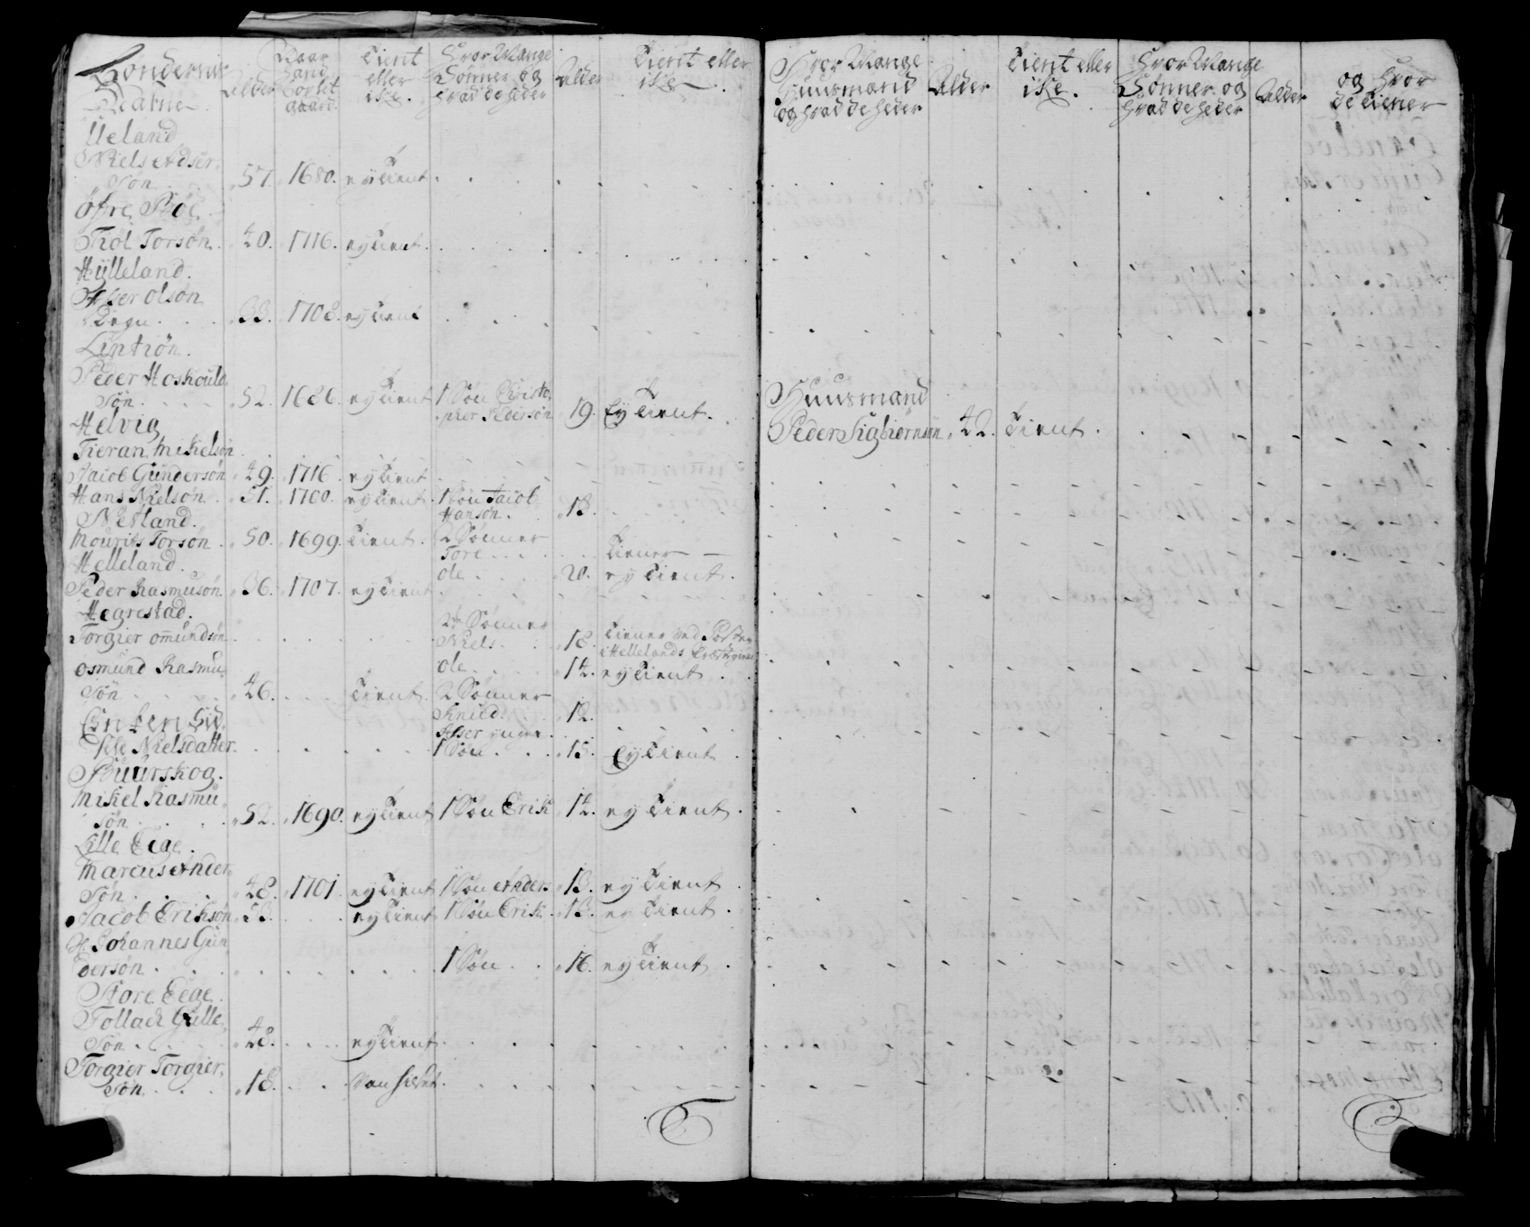 Bøndernis
Nafne
Alder
Naar
hand
Bøxlet
gaard.
Tient
eller
ike.
Hvor Mange
Sønner og
hvad de heder
Alder
Tient eller
ike.
Hvor Mange
Huusmænd
og hvad de heder
Alder
Tient eller
ike.
Hvor Mange
Sønner og
hvad de heder
Alder
og hvor
de tiener
Ueland
Niels Adser,
Søn 57. 1680. ey tient.
Øfre Bøe
Thol Torsøn. 40. 1716. ey tient.
Hylleland.
Asser Olsøn
Degn. 33. 1708. ey tient
Lintiøn.
Peder Hoskould
Søn. 52. 1686. ey tient 1 Søn Christo,
pher Pedersøn 19. Ey tient.
Huusmand
Peder Sigbiørnsøn. 42. tient.
Helvig
Tieran Mikelsøn
Jacob Gundersøn 49. 1716. ey tient
Hans Nielsøn. 51. 1700. ey tient. 1 Søn Jacob
Hansøn. 13.
Nesland.
Mourits Torsøn. 50. 1699. tient. 2 Sønner
Tore tiener
Helleland.
Ole. 20. ey tient.
Peder Rasmusøn. 36. 1707. ey tient
Hegrestad.
Torgier Omundsøn 2 Sønner
Niels. 18. tiener ved Præsten
i Hellelands
Ole. 14. ey tient.
Osmund Rasmu,
Søn 46. tient. 2 Sønner
12.
Asser yngre
Sille Nielsdatter. 1 Søn. 15. Ey tient
Buurskog.
Mikel Rasmu,
Søn 52. 1690. ey tient 1 Søn Erik 14. ey tient.
Lille Eege.
Marcus Ander,
Søn. 48. 1701. ey tient 1 Søn Anders. 13. ey tient.
Jacob Eriksøn 53. ey tient 1 Søn Erik. 13. ey tient.
Johannes Gun
dersøn. 1 Søn. 16. ey tient.
Store Eege.
Tollack Gulle,
Søn. 48. ey tient.
Torgier Torgier,
Søn. 18.